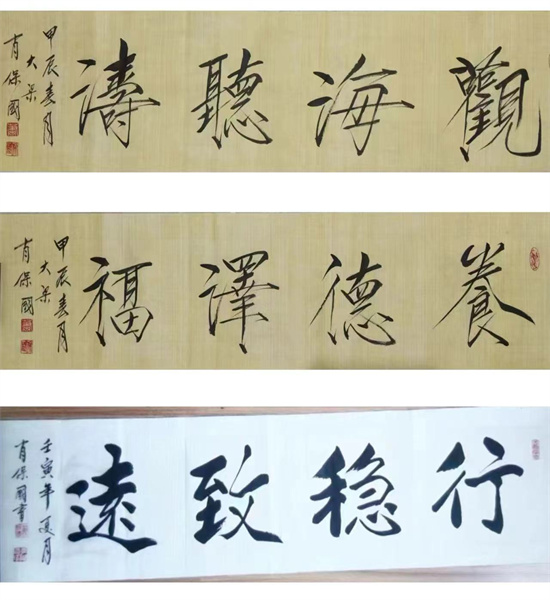 觀海聽濤
甲辰春月
大梁
肖保國
養德澤福
甲辰春月
大梁
肖保國
行稳致遠
壬寅年夏月
肖保國書